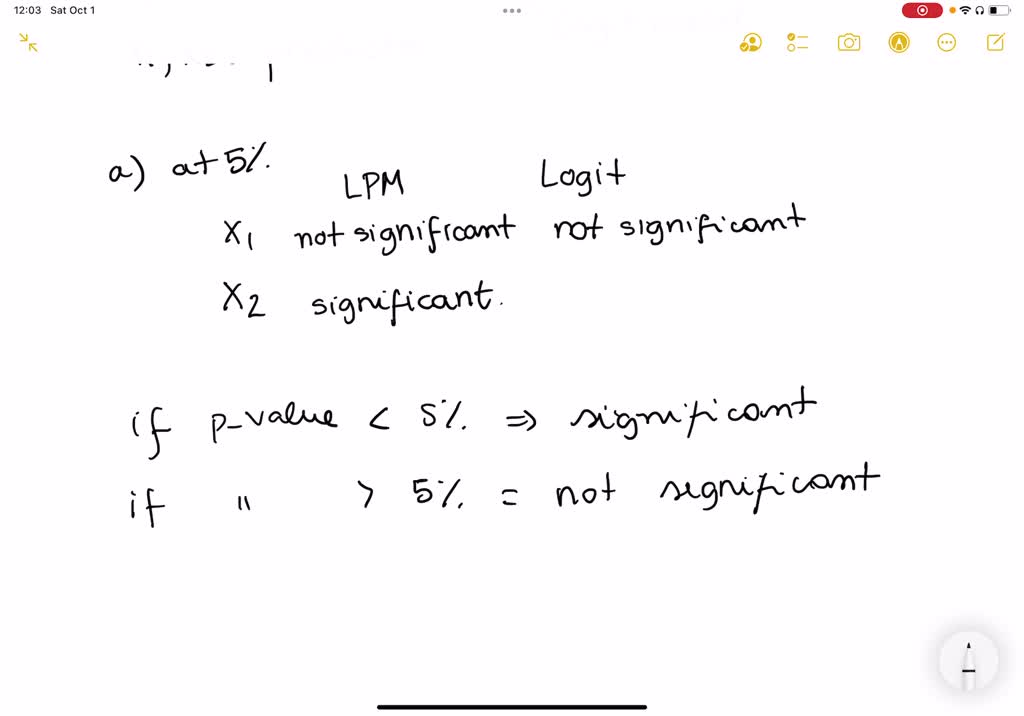 12:03 Sat Oct 1
a) at 5%.
LPM Logit
X1 not significant not significant
X2 significant.
if p-value < 5% => significant
if " > 5% = not significant